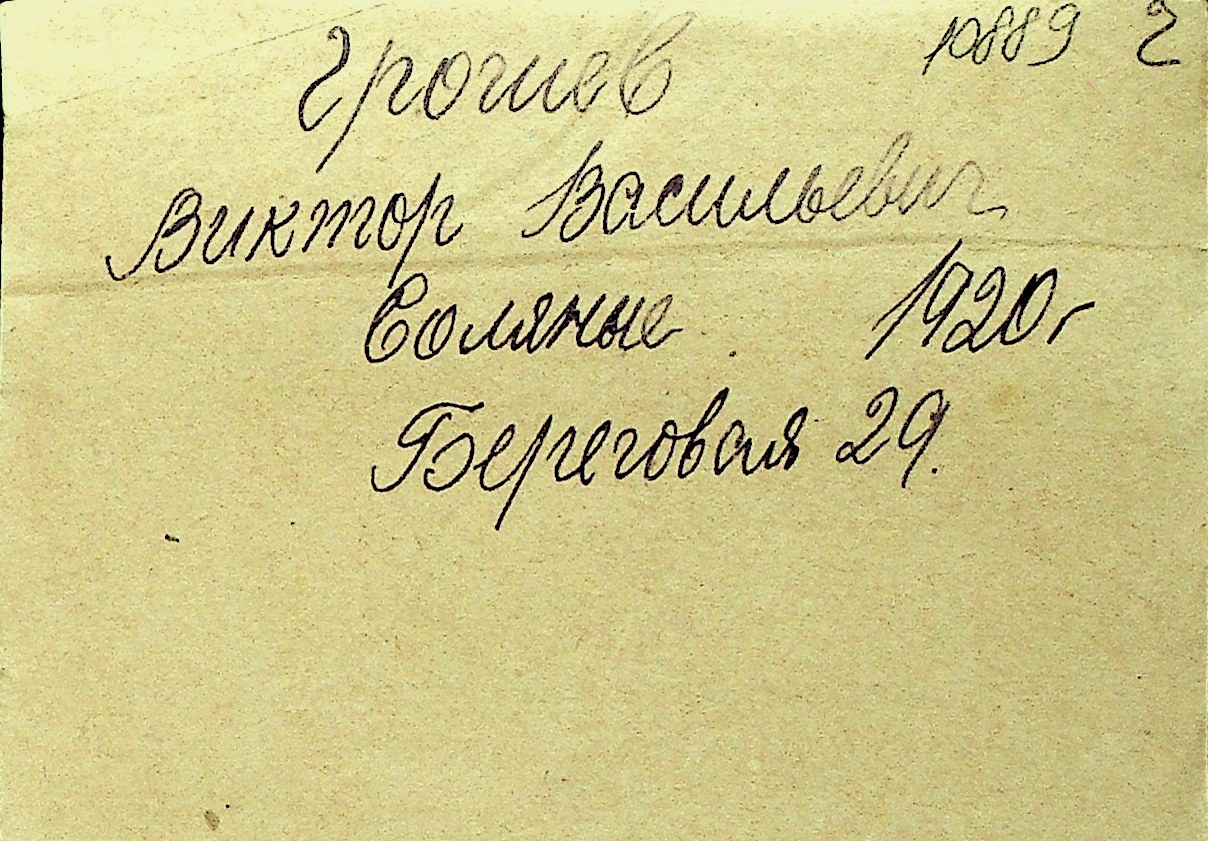 10889 г
Грошев
Виктор Васильевич
Соляные 1920г
Береговая 29.